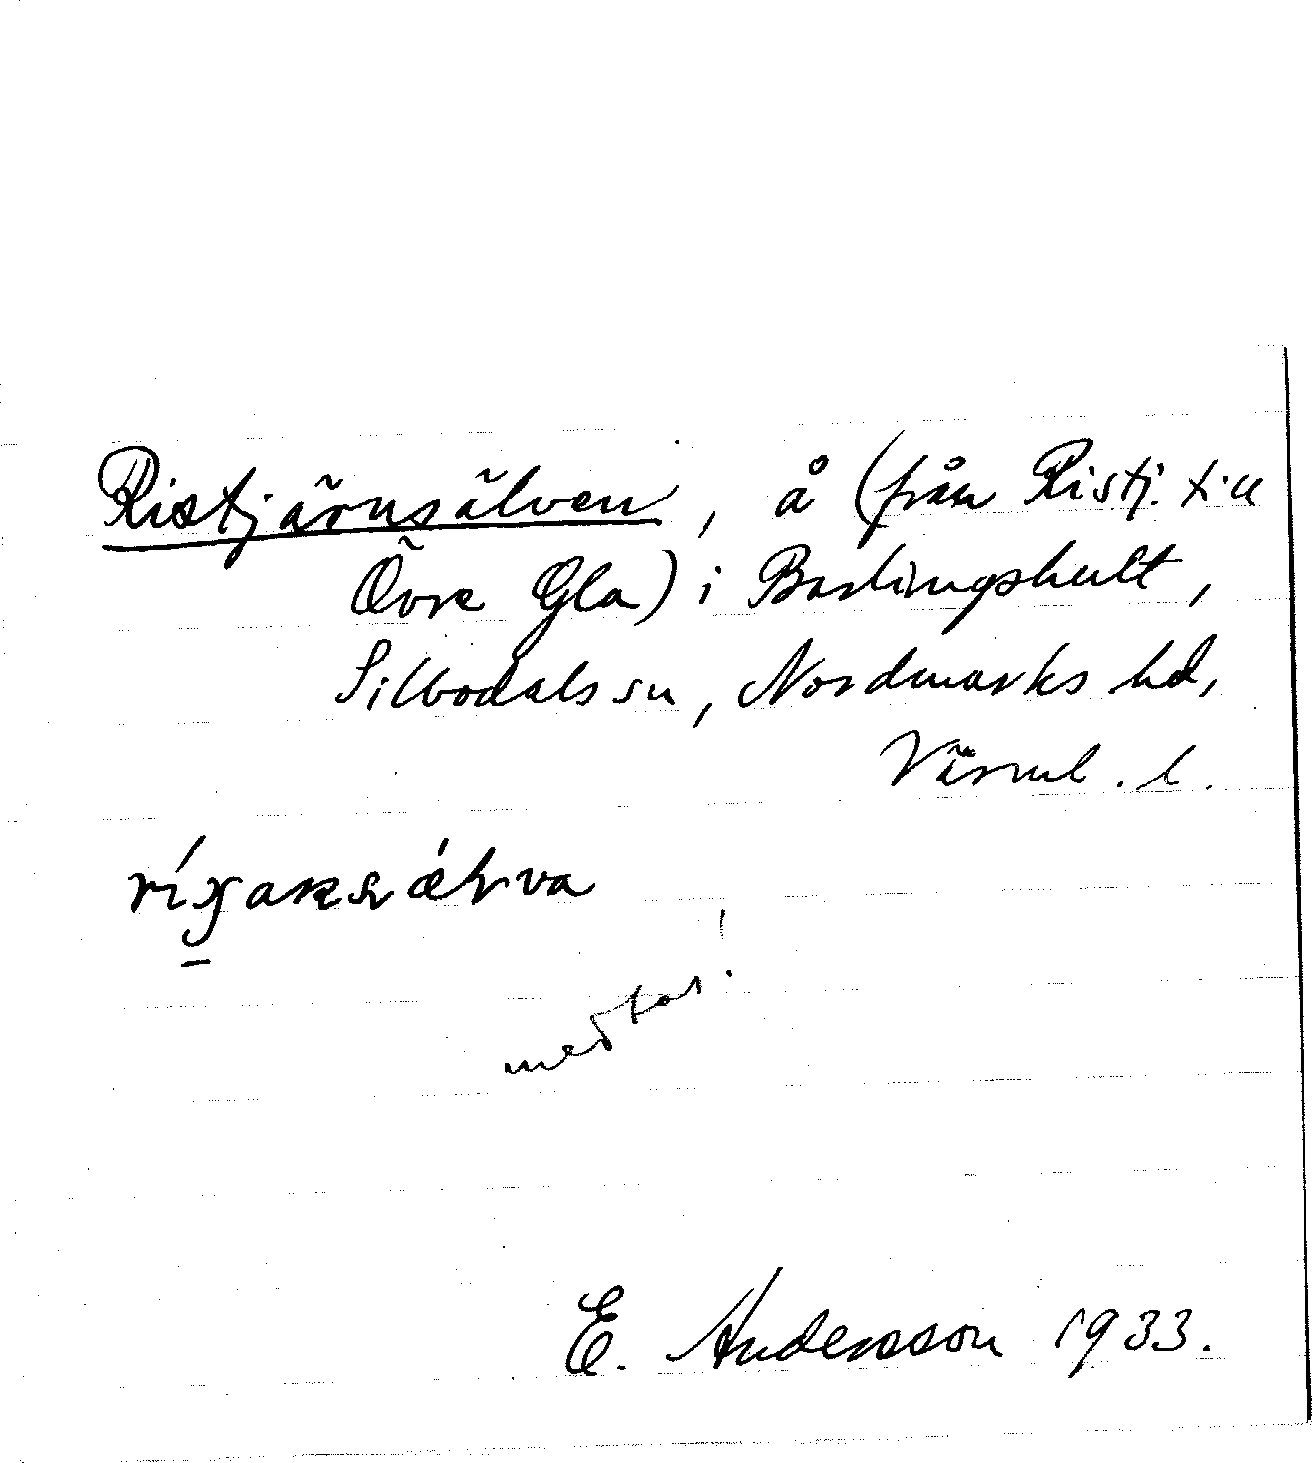 Ristjärnsälven, å (från Ristj. till
Övre Gla) i Barlingshult,
Silbodals sn, Nordmarks hd,
Värml. l.
medtas!
E. Andersson 1933.